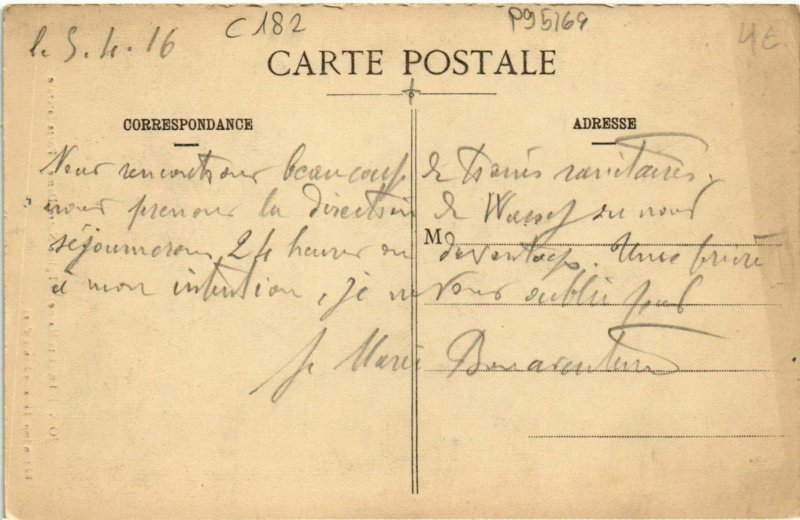 le 5.4.16
C 182
P95169
4E
CARTE POSTALE
CORRESPONDANCE
ADRESSE
M
Nous rencontrons beaucoup de trains sanitaires.
nous prenons la direction de Wassy où nous
séjournerons 24 heures ou davantage. Une prière
à mon intention, je ne vous oublie pas
fr Marie Bonaventure